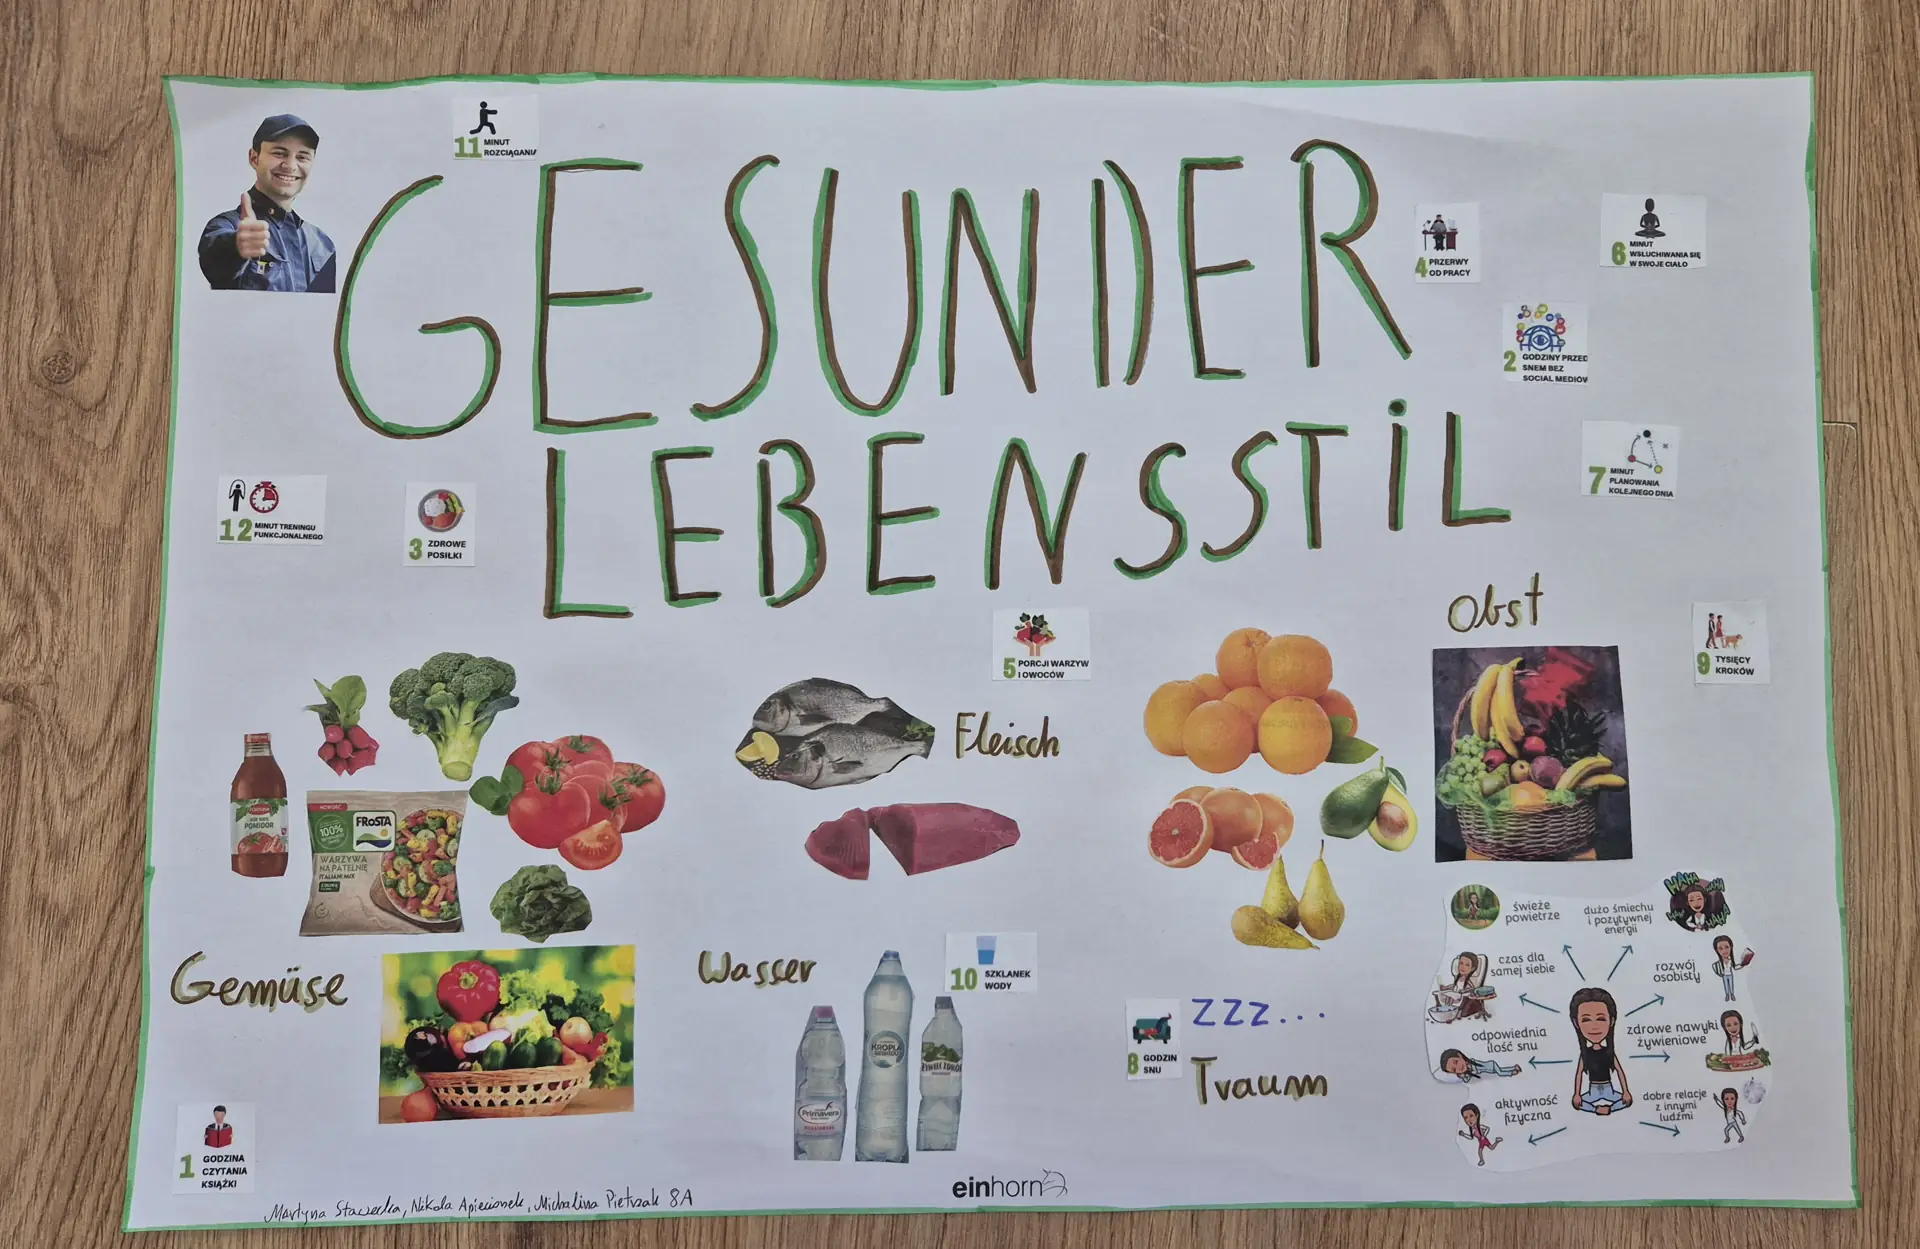 11 MINUT
ROZCIĄGANIA
GESUNDER
LEBENSSTIL
4 PRZERWY
OD PRACY
6 MINUT
WSŁUCHIWANIA SIĘ
W SWOJE CIAŁO
2 GODZINY PRZED
SNEM BEZ
SOCIAL MEDIÓW
7 MINUT
PLANOWANIA
KOLEJNEGO DNIA
12 MINUT TRENINGU
FUNKCJONALNEGO
3 ZDROWE
POSIŁKI
5 PORCJI WARZYW
I OWOCÓW
Obst
9 TYSIĘCY
KROKÓW
Fleisch
POMIDOR
NOWOŚĆ
100%
FRoSTA
WARZYWA
NA PATELNIĘ
ITALIANI MIX
Gemüse
Wasser
10 SZKLANEK
WODY
Primavera
KROPLA
BESKIDU
ŻYWIEC ZDRÓJ
8 GODZIN
SNU
ZZZ...
Traum
świeże
powietrze
dużo śmiechu
i pozytywnej
energii
HAHA
czas dla
samej siebie
rozwój
osobisty
odpowiednia
ilość snu
zdrowe nawyki
żywieniowe
aktywność
fizyczna
dobre relacje
z innymi
ludźmi
1 GODZINA
CZYTANIA
KSIĄŻKI
einhorn
Martyna Stawecka, Nikola Apiecionek, Michalina Pietrzak 8A